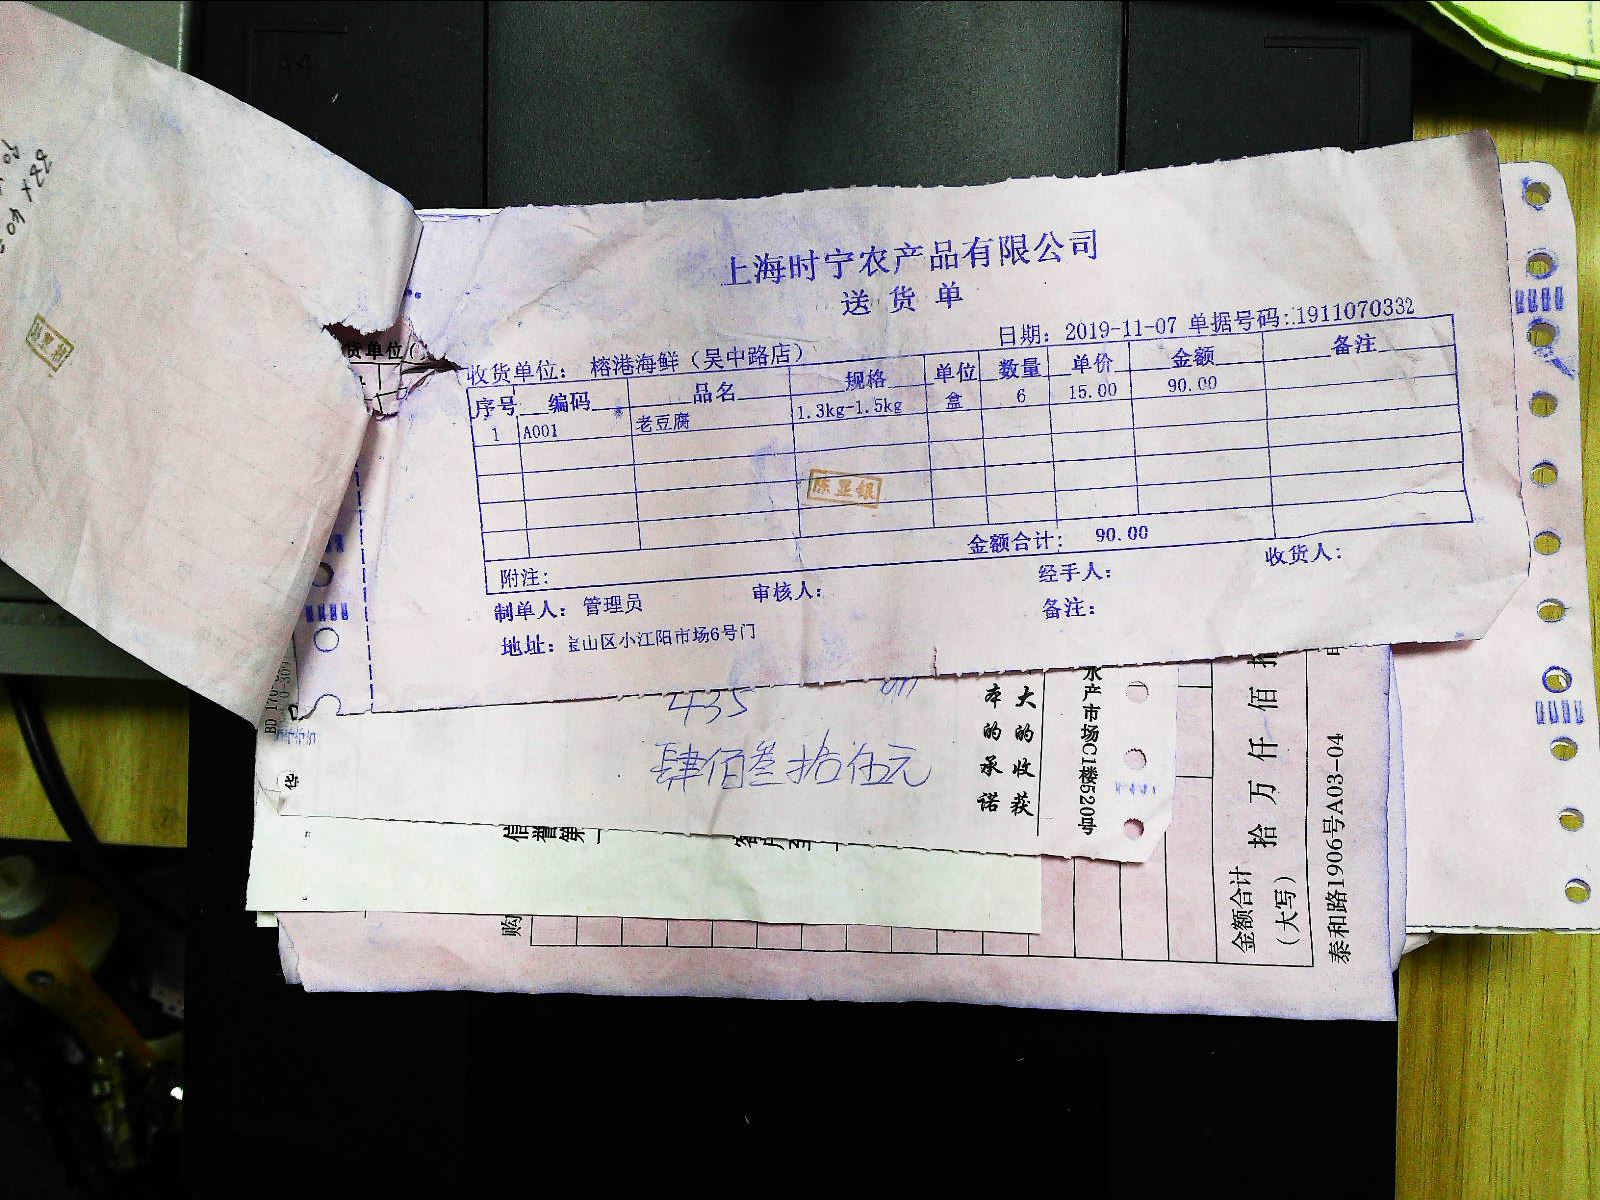 上海时宁农产品有限公司
送货单
日期：2019-11-07 单据号码：:1911070332
收货单位：榕港海鲜（吴中路店）
序号 编码 品名 规格 单位 数量 单价 金额 备注
1 A001 老豆腐 1.3kg-1.5kg 盒 6 15.00 90.00
金额合计： 90.00
附注：
制单人：管理员 审核人： 经手人： 收货人：
地址：宝山区小江阳市场6号门 备注：
陈显银
货单位（
A4
435
肆佰叁拾伍元
大的收获
本的承诺
水产市场C1楼520号
信誉第一
客户至
购
金额合计
（大写）
拾 万 仟 佰 拾
泰和路1906号A03-04
华